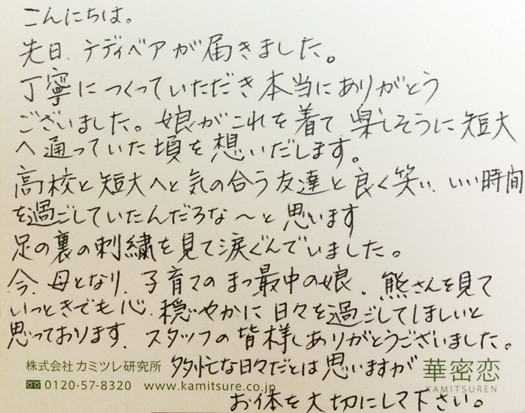 こんにちは。
先日、テディベアが届きました。
丁寧につくっていただき本当にありがとう
ございました。娘がこれを着て楽しそうに短大
へ通っていた頃を想いだします。
高校と短大へと気の合う友達と良く笑い、いい時間
を過ごしていたんだろうな〜と思います
足の裏の刺繍を見て涙ぐんでいました。
今、母となり、子育てのまっ最中の娘、熊さんを見て
いっときでも心、穏やかに日々を過ごしてほしいと
思っております。スタッフの皆様、ありがとうございました。
多忙な日々だとは思いますが
お体を大切にして下さい。
株式会社 カミツレ研究所
0120-57-8320 www.kamitsure.co.jp
華密恋
KAMITSUREN